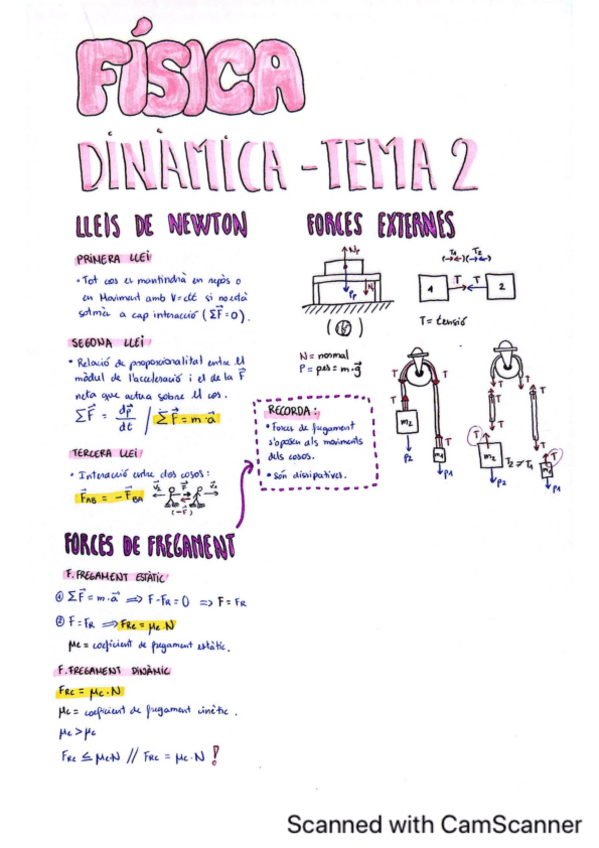 FÍSICA
DINÀMICA - TEMA 2
LLEIS DE NEWTON
PRIMERA LLEI
• Tot cos es mantindrà en repòs o
en Moviment amb V=ctt si no està
sotmès a cap interacció (ΣF⃗=0).
SEGONA LLEI
• Relació de proporcionalitat entre el
mòdul de l'acceleració i el de la F⃗
neta que actua sobre el cos.
ΣF⃗ = dp⃗/dt / ΣF⃗ = m·a⃗
TERCERA LLEI
• Interacció entre dos cossos:
F⃗AB = -F⃗BA
F⃗
(-F⃗)
FORCES EXTERNES
N = normal
P = pes = m·g⃗
T1 T2
1 T T 2
T = tensió
T T
T T
m2
m1
P2
P1
T T
T T
T T
m2 T2 ≠ T1 m1
P2
P1
RECORDA:
• Forces de fregament
s'oposen als moviments
dels cossos.
• Són dissipatives.
FORCES DE FREGAMENT
F. FREGAMENT ESTÀTIC
① ΣF⃗ = m·a⃗ ⟹ F-FR = 0 ⟹ F = FR
② F = FR ⟹ FRe = μe·N
μe = coeficient de fregament estàtic.
F. FREGAMENT DINÀMIC
FRc = μc·N
μc = coeficient de fregament cinètic.
μe > μc
FRe ≤ μe·N // FRc = μc·N !
Scanned with CamScanner